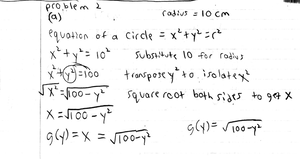 problem 2
(a) radius = 10 cm
equation of a circle = x² + y² = r²
x² + y² = 10² substitute 10 for radius
x² + y² = 100 transpose y² to isolate y²
√x² = √100 - y² square root both sides to get x
x = √100 - y²
g(y) = x = √100-y² g(y) = √100-y²